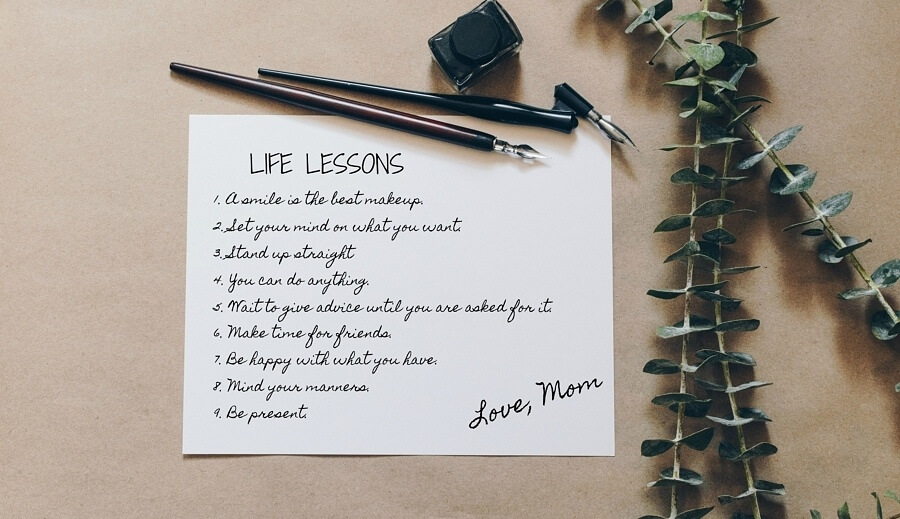 LIFE LESSONS
1. A smile is the best makeup.
2. Set your mind on what you want.
3. Stand up straight
4. You can do anything.
5. Wait to give advice until you are asked for it.
6. Make time for friends.
7. Be happy with what you have.
8. Mind your manners.
9. Be present.
Love, Mom